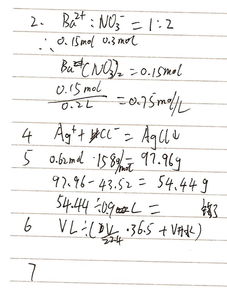 2. Ba²⁺ : NO₃⁻ = 1 : 2
∴ 0.15mol 0.3mol
Ba(NO₃)₂ = 0.15mol
0.15mol / 0.2L = 0.75mol/L
4 Ag⁺ + Cl⁻ = AgCl↓
5 0.62mol · 158g/mol = 97.96g
97.96 - 43.52 = 54.44g
54.44 ÷ 0.9 L = 错了
6 VL ÷ ( V/22.4 · 36.5 + V水)
7